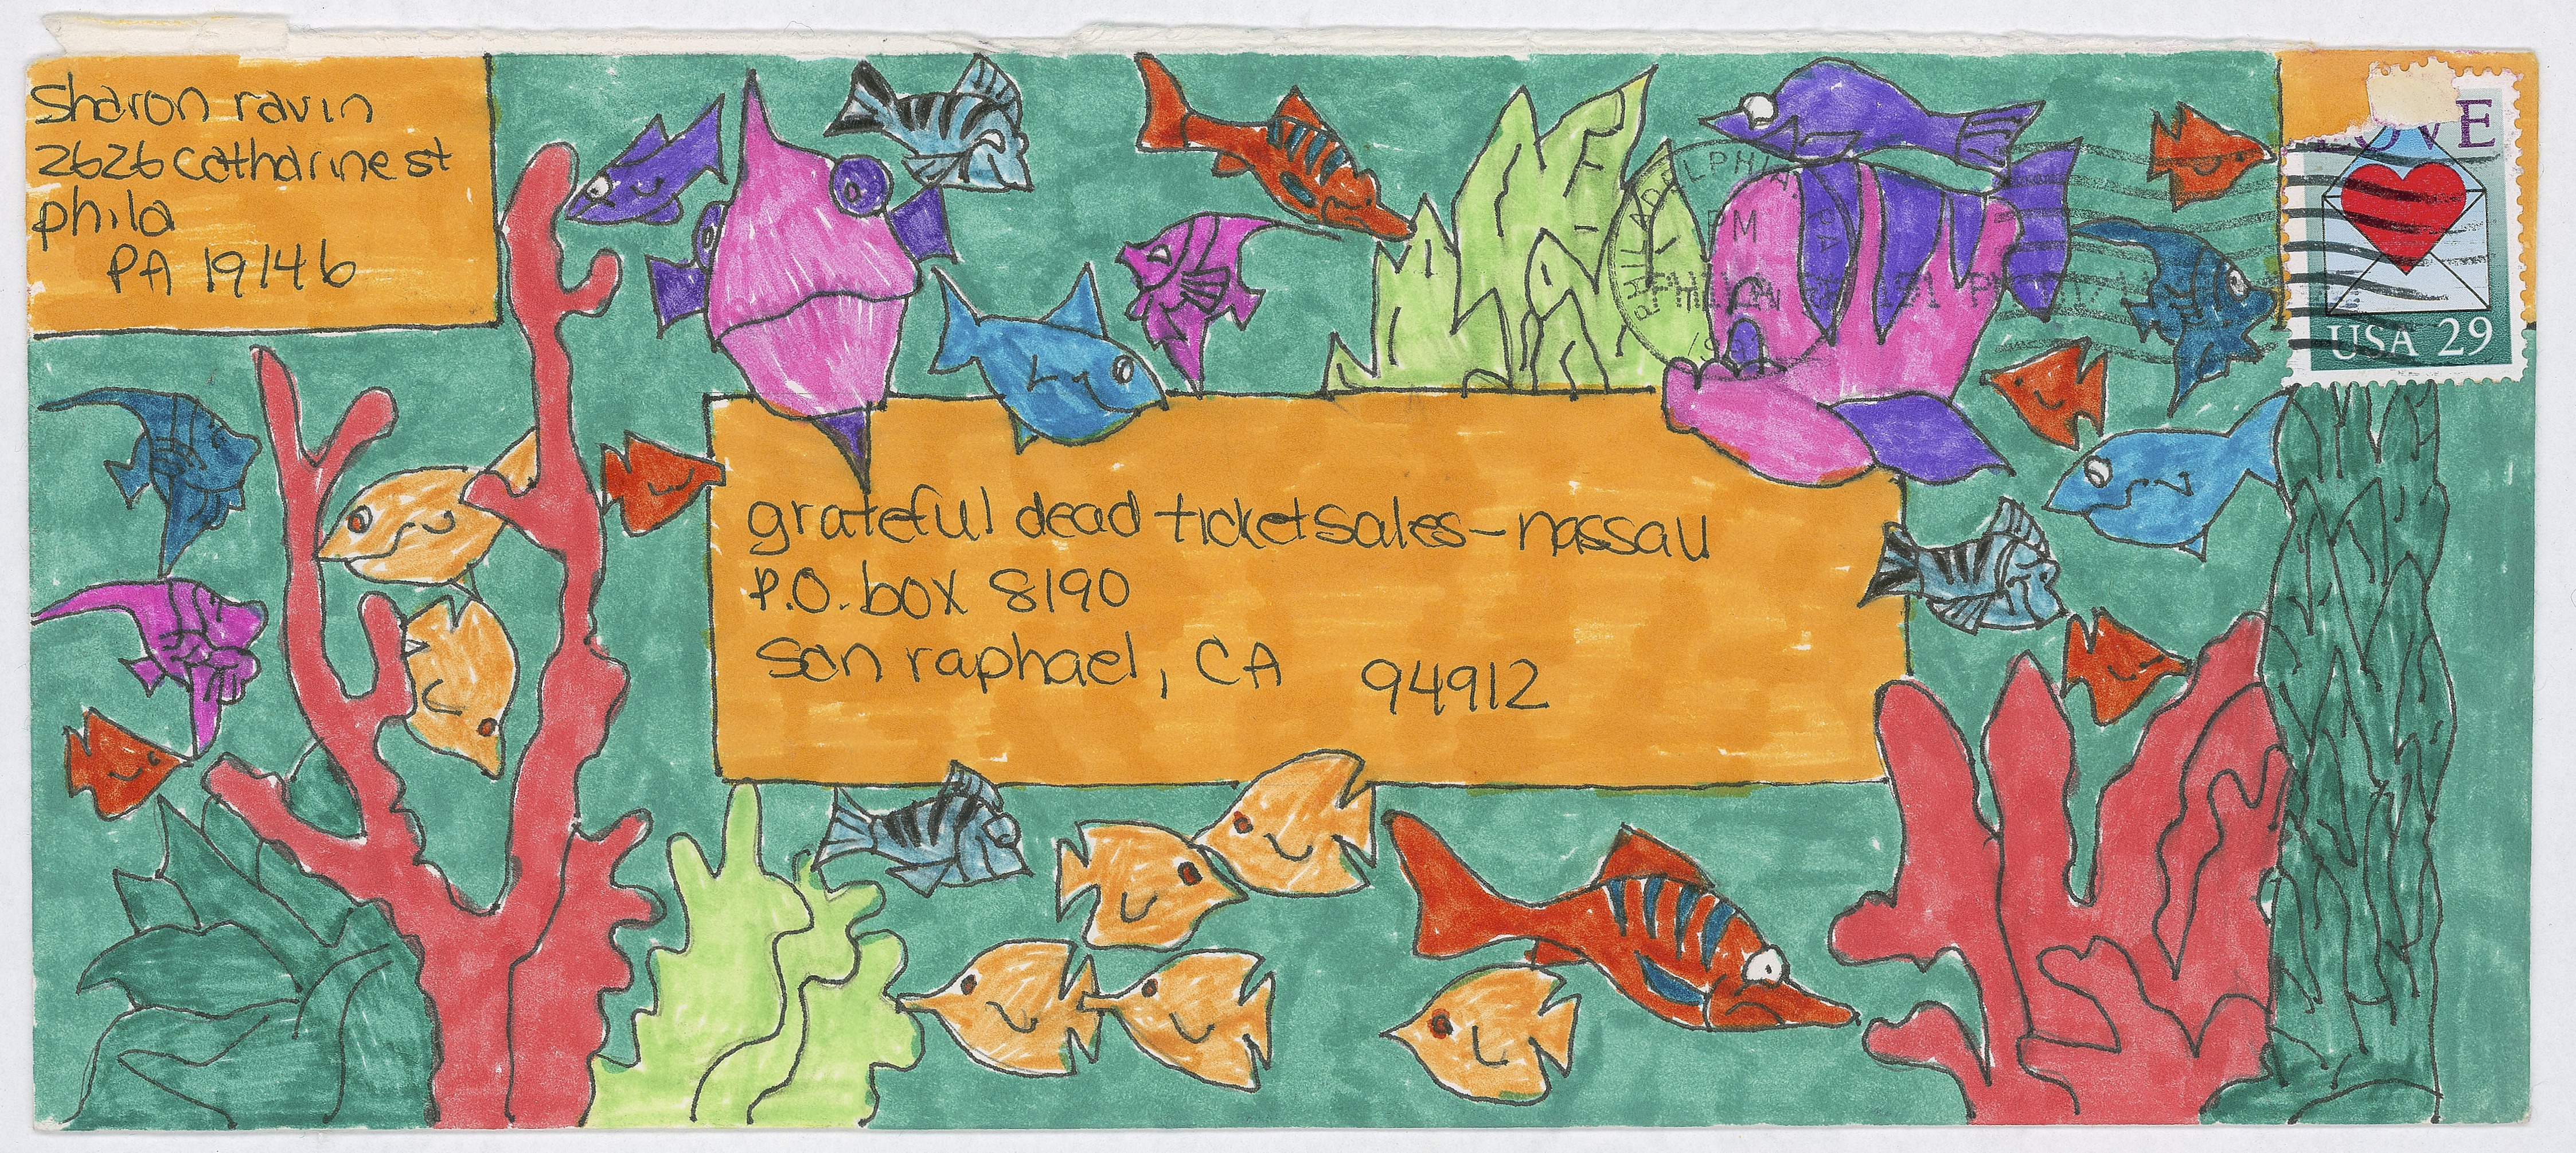 Sharon ravin
2626 Catharine st
phila
PA 19146
LOVE
USA 29
PHILADELPHIA, PA
PM
grateful dead ticket sales-nassau
P.O. box 8190
San raphael, CA 94912